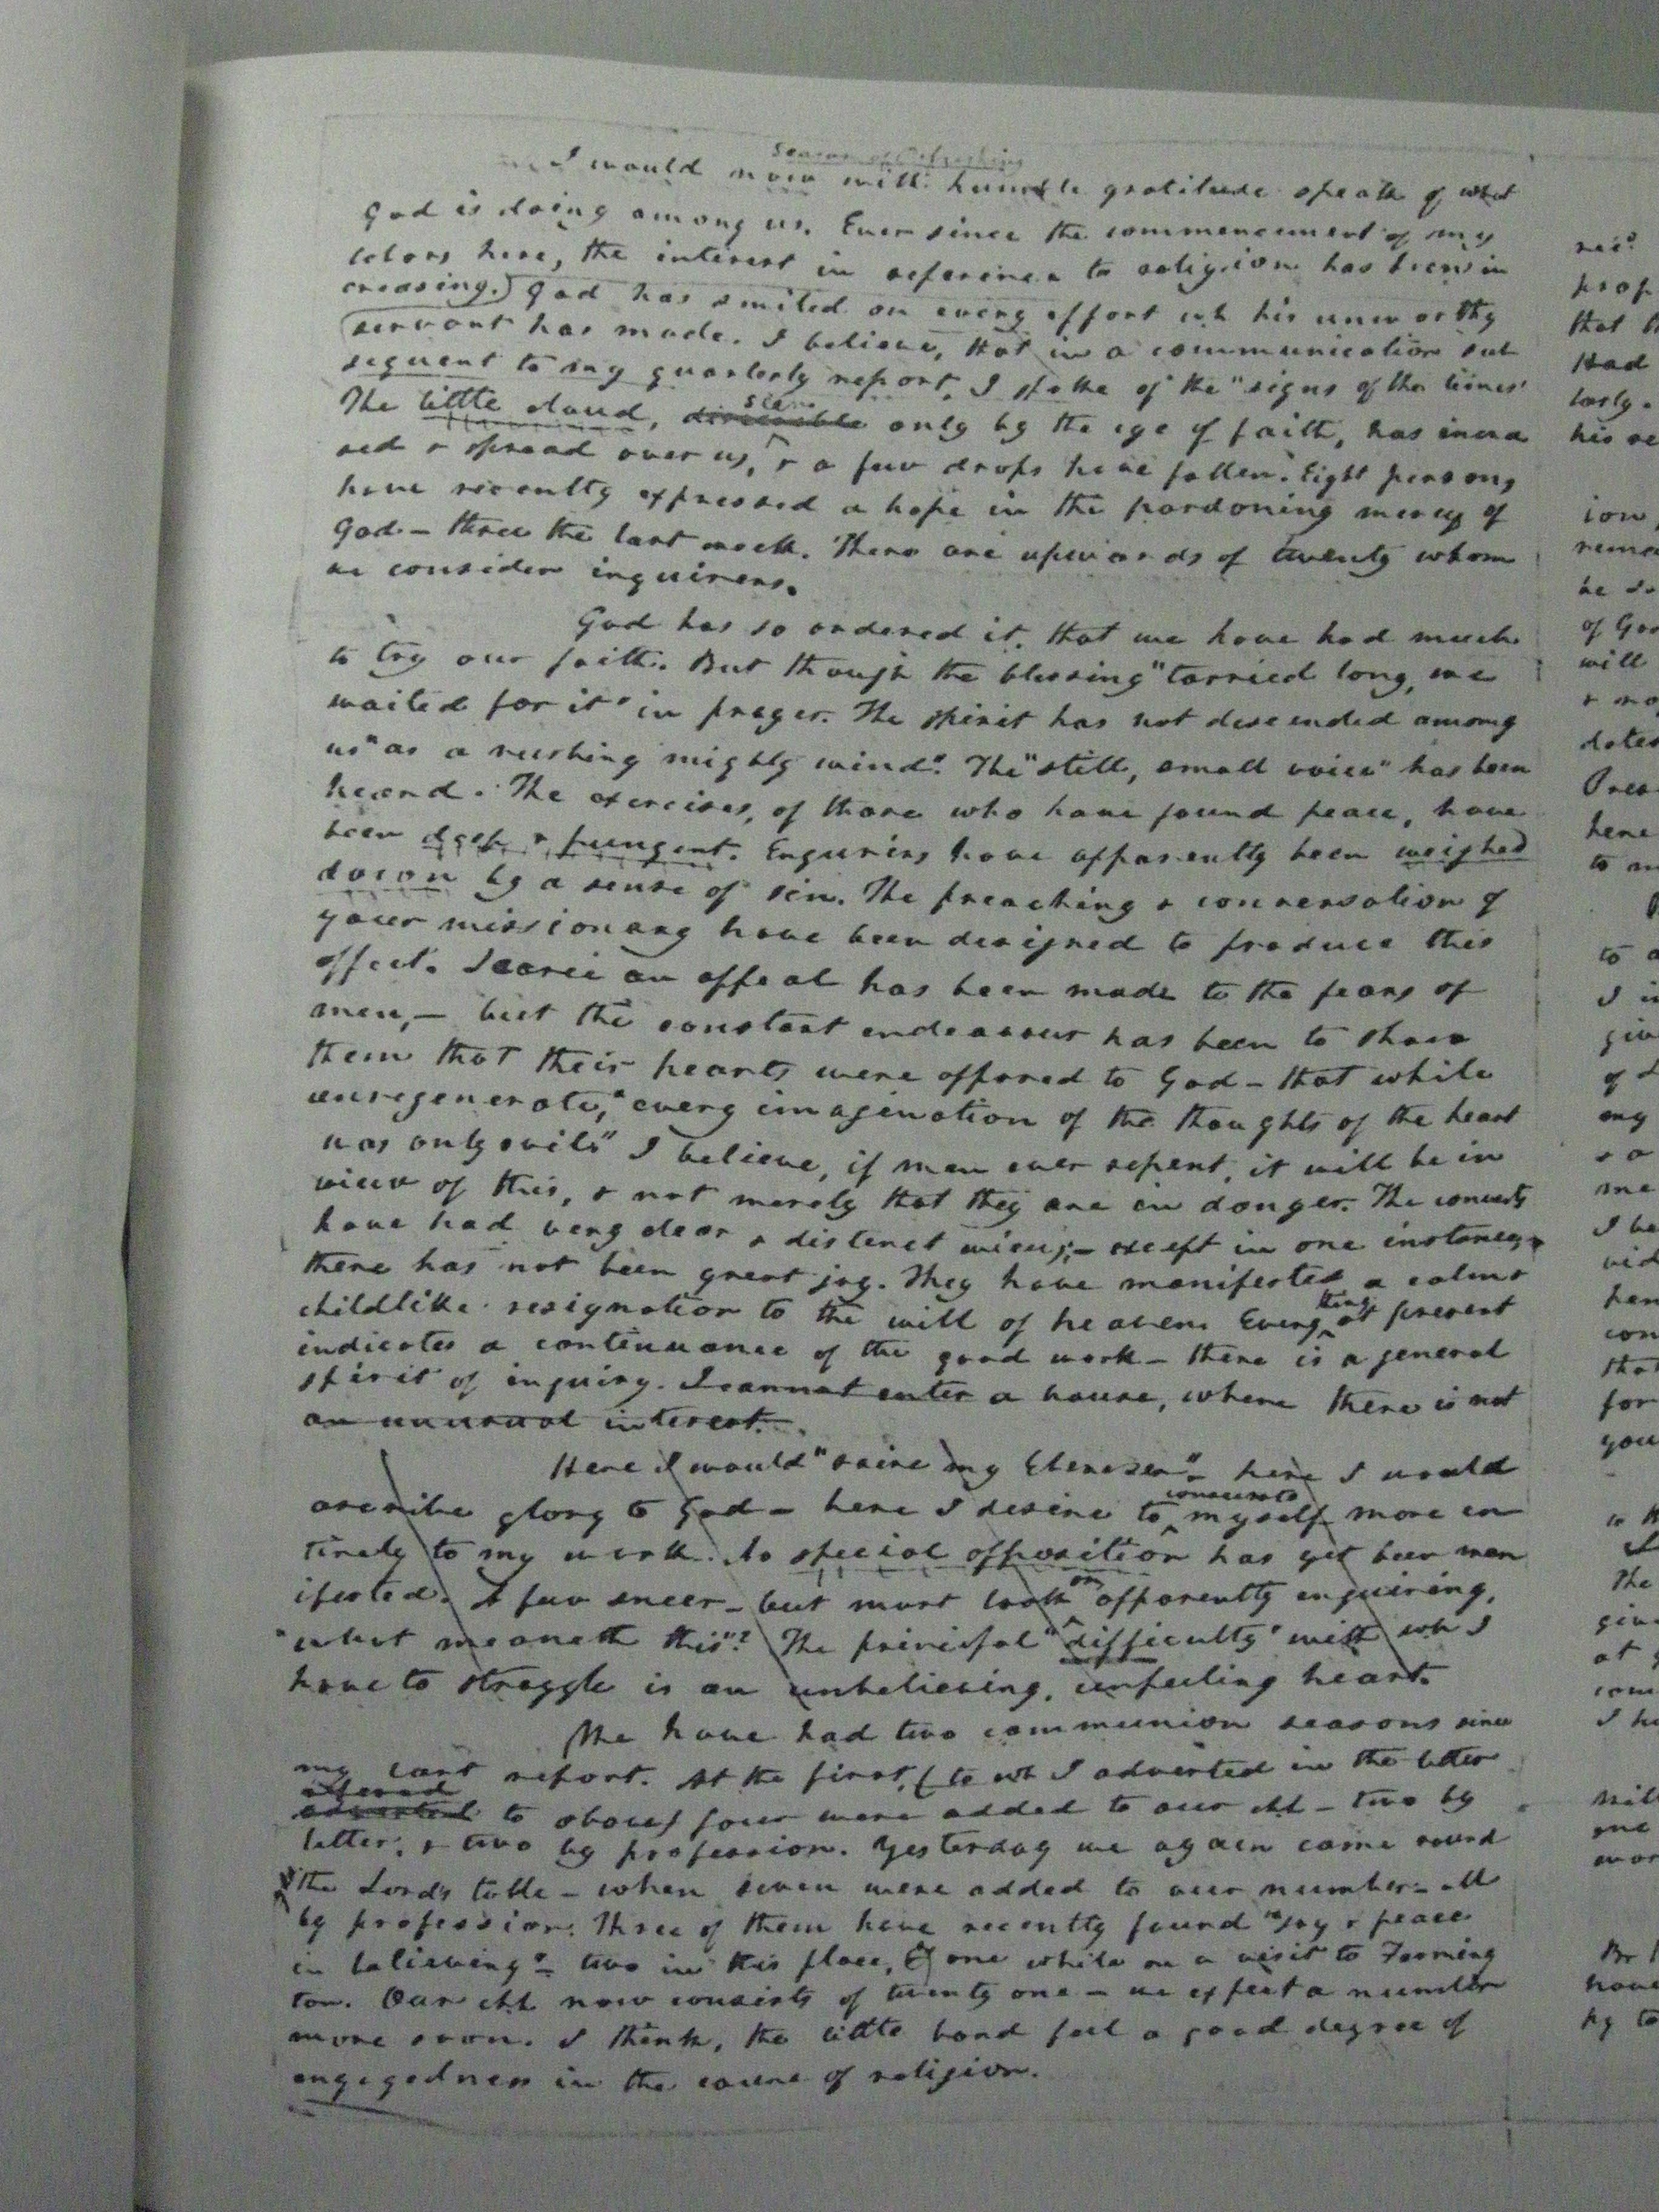 Season of Refreshing
I would now with humble gratitude speak of what
God is doing among us. Ever since the commencement of my
labors here, the interest in reference to religion has been in
creasing.) God has smiled on every effort wh his unworthy
servant has made. I believe, that in a communication sub
sequent to my quarterly report, I spoke of the "signs of the times"
The little cloud, discernible seen only by the eye of faith, has increa
sed & spread over us, & a few drops have fallen. Eight persons
have recently expressed a hope in the pardoning mercy of
God - three the last week. There are upwards of twenty whom
we consider inquirers.
God has so ordered it, that we have had much
to try our faith. But though the blessing "tarried long, we
waited for it" in prayer. The spirit has not descended among
us "as a rushing mighty wind". The "still, small voice" has been
heard. The exercises, of those who have found peace, have
been deep & pungent. Enquirers have apparently been weighed
down by a sense of sin. The preaching & conversation of
your missionary have been designed to produce this
effect. Scarce an appeal has been made to the fears of
men, - but the constant endeavour has been to show
them that their hearts were opposed to God - that while
unregenerate, "every imagination of the thoughts of the heart
was only evil." I believe, if men ever repent, it will be in
view of this, & not merely that they are in danger. The converts
have had very clear & distinct views; - except in one instance,
there has not been great joy. They have manifested a calm &
childlike resignation to the will of heaven. Every thing at present
indicates a continuance of the good work - there is a general
spirit of inquiry. I cannot enter a house, where there is not
an unusual interest.
Here I would "raise my Ebenezer" - here I would
ascribe glory to God - here I desire to consecrate myself more en
tirely to my work. No special opposition has yet been man
ifested. A few sneer - but most look on apparently enquiring,
"what meaneth this"? The principal "difficulty" with wh I
have to struggle is an unbelieving, unfeeling heart.
We have had two communion seasons since
my last report. At the first, (to wh I adverted in the letter
altered adverted to above) four were added to our chh - two by
letter, & two by profession. Yesterday we again came round
the Lord's table - when seven were added to our number - all
by profession. Three of them have recently found "joy & peace
in believing" - two in this place, & one while on a visit to Farming
ton. Our chh now consists of twenty one - we expect a number
more soon. I think, the little band feel a good degree of
engagedness in the cause of religion.